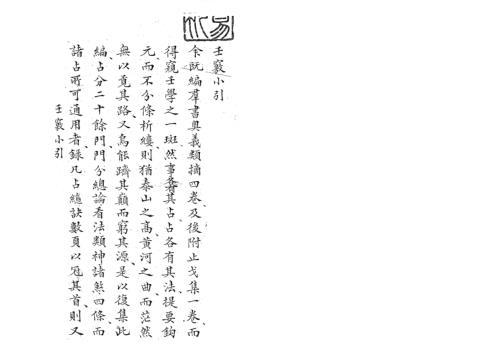 壬竅小引
余既編羣書奥義類摘四卷及後附止戈集一卷而
得窺壬學之一斑然事各有其占占各有其法提要鉤
元而不分條析縷則猶泰山之高黄河之曲而茫然
無以覓其路又烏能躋其巔而窮其源是以復集此
編占分二十餘門門分總論看法類神諸煞四條而
諸占所可通用者錄凡占總訣數頁以冠其首則又
壬竅小引